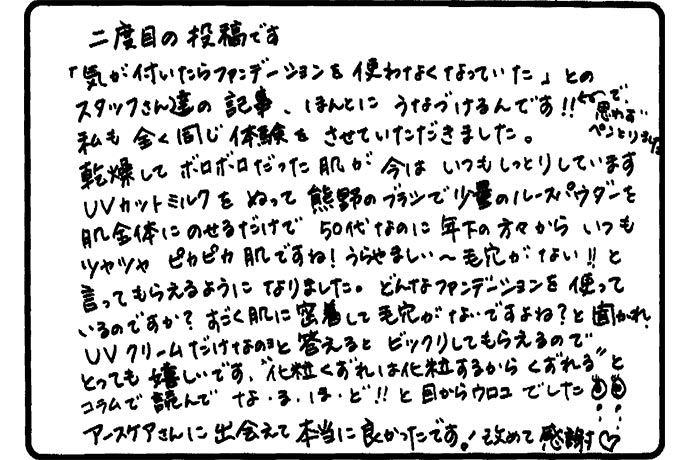 二度目の投稿です
「気が付いたらファンデーションを使わなくなっていた」との
スタッフさん達の記事、ほんとにうなづけるんです!!
で、思わず
ペンとりました
私も全く同じ体験をさせていただきました。
乾燥してボロボロだった肌が今はいつもしっとりしています
UVカットミルクをぬって熊野のブラシで少量のルースパウダーを
肌全体にのせるだけで50代なのに年下の方々からいつも
ツヤツヤピカピカ肌ですね!うらやましい〜毛穴がない!!と
言ってもらえるようになりました。どんなファンデーションを使って
いるのですか?すごく肌に密着して毛穴がないですよね?と聞かれ、
UVクリームだけなのョと答えるとビックリしてもらえるので
とっても嬉しいです、"化粧くずれは化粧するからくずれる"と
コラムで読んでな・る・ほ・ど!!と目からウロコでした
アースケアさんに出会えて本当に良かったです。!改めて感謝♡